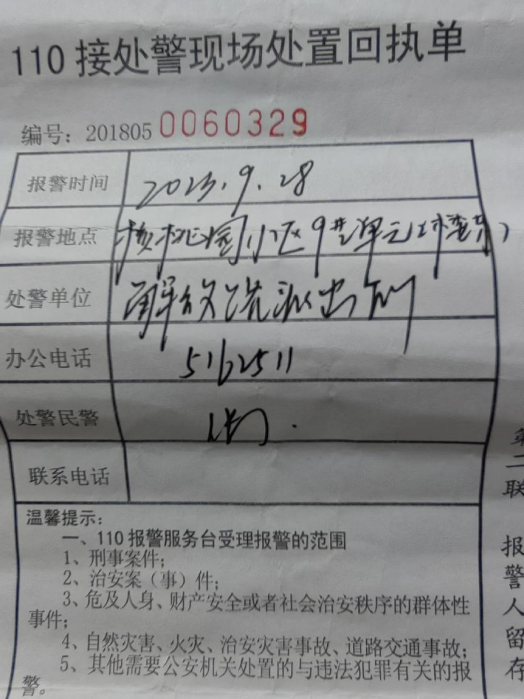 110接处警现场处置回执单
编号：201805 0060329
报警时间 2023.9.28
报警地点 核桃园小区9 单元
处警单位 解放路派出所
办公电话 5162511
处警民警
联系电话
温馨提示：
一、110报警服务台受理报警的范围
1、刑事案件；
2、治安案（事）件；
3、危及人身、财产安全或者社会治安秩序的群体性
事件；
4、自然灾害、火灾、治安灾害事故、道路交通事故；
5、其他需要公安机关处置的与违法犯罪有关的报
警。
第
二
联
报
警
人
留
存